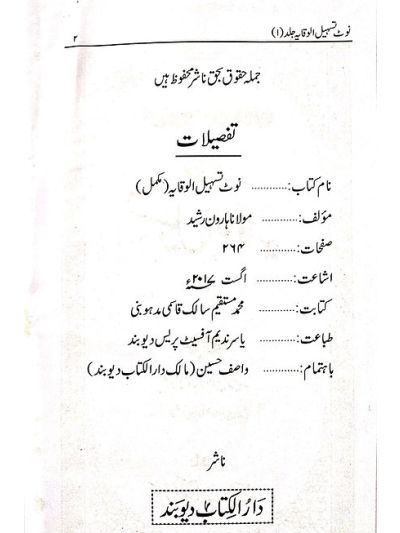 ۲ نوٹ تسہیل الوقایہ جلد (۱)
جملہ حقوق بحق ناشر محفوظ ہیں
تفصیلات
نام کتاب: ............ نوٹ تسہیل الوقایہ (مکمل)
مؤلف: ............ مولانا ہارون رشید
صفحات: ............ ۲۶۴
اشاعت: ............ اگست ۲۰۱۷ء
کتابت: ............ محمد مستقیم سالک قاسمی مدہوبنی
طباعت: ............ یاسر ندیم آفسیٹ پریس دیوبند
باہتمام: ............ واصف حسین (مالک دارالکتاب دیوبند)
ناشر
دَارُ الکِتَاب دیوبَند